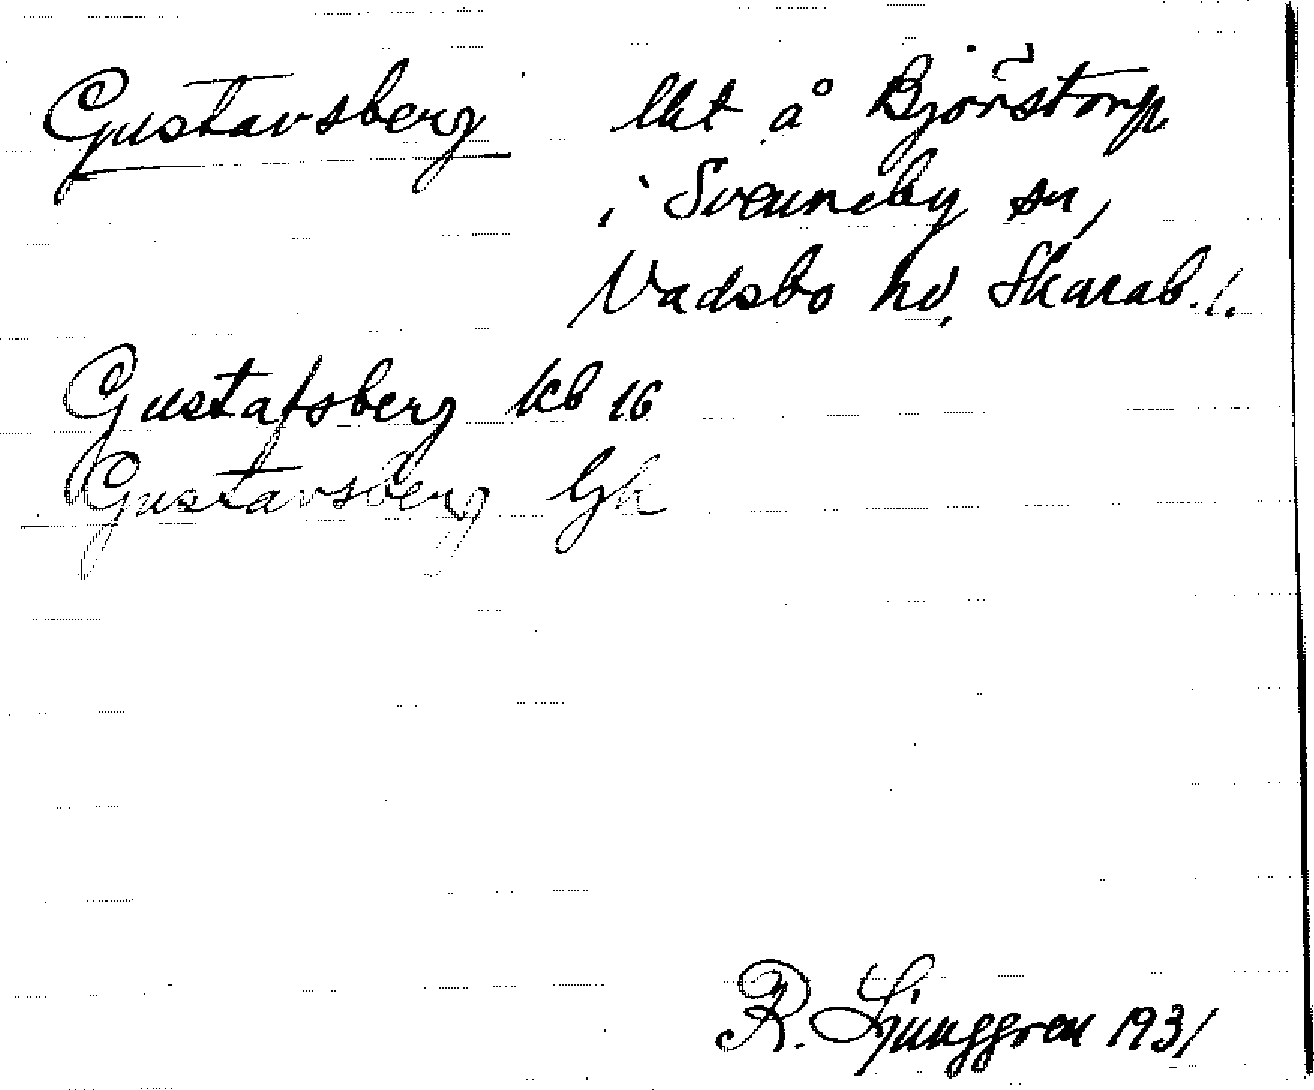 Gustavsberg lht å Björstorp
i Svenneby sn,
Vadsbo hd, Skarab. l.
Gustafsberg kb 16
Gustavsberg Gk
R. Ljunggren 1931